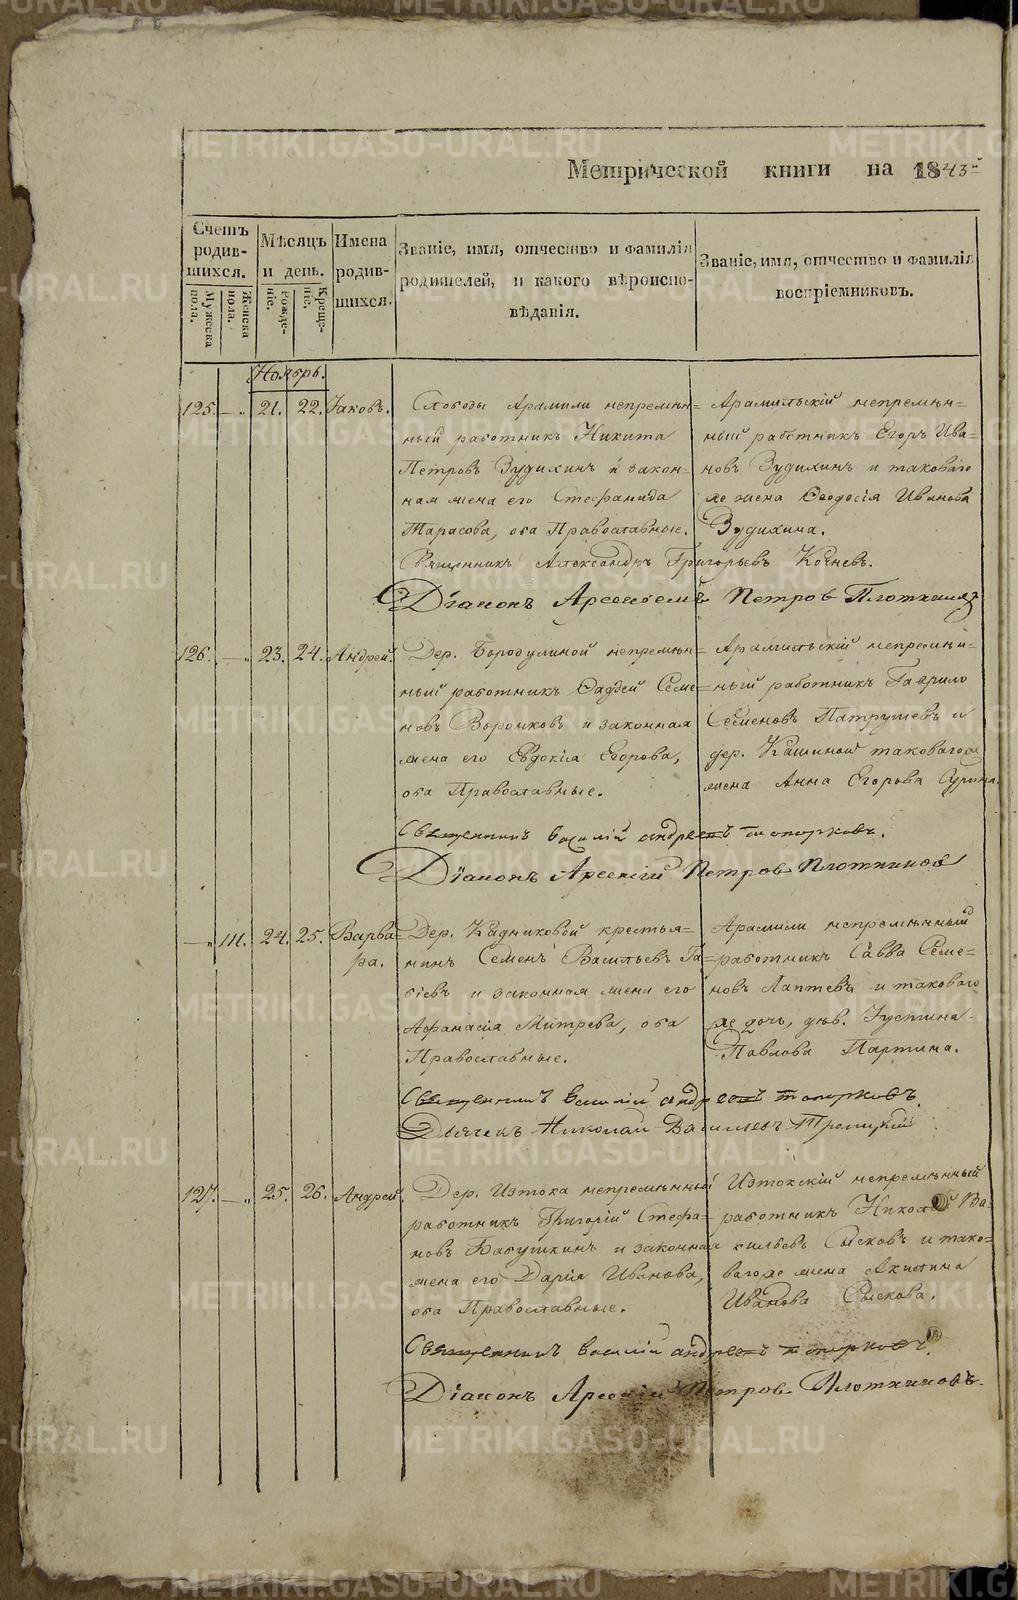 Метрической книги на 1843й
Счетъ родив-шихся.
Мужеска пола.
Женска пола.
Мѣсяцъ и день.
Рожде-ніе.
Креще-ніе.
Имена родив-шихся.
Званіе, имя, отчество и фамилія
родителей, и какого вѣроиспо-
вѣданія.
Званіе, имя, отчество и фамилія
воспріемниковъ.
Ноябрь.
125. — „ 21. 22. Іаковъ.
Слободы Арамили непремѣн-
ный работникъ Никита
Петровъ Зудихинъ и закон-
ная жена его Стефанида
Тарасова, оба Православные.
Арамильскій непремѣн-
ный работникъ Егоръ Ива-
новъ Зудихинъ и таковаго
же жена Ѳеодосія Иванова
Зудихина.
Священникъ Александръ Григорьевъ Кочневъ.
Діаконъ Арсеній Петров Плотников
126. — „ 23. 24. Андрей.
Дер. Бородулиной непремѣн-
ный работникъ Фаддей Семе-
новъ Воронковъ и законная
жена его Евдокія Егорова,
оба Православные.
Арамильскій непремѣн-
ный работникъ Гаврило
Семеновъ Патрушевъ и
дер. Кашиной таковагоже
жена Анна Егорова Сурина.
Священникъ василій андреевъ топорковъ.
Діаконъ Арсеній Петров Плотников
— „ 111. 24. 25. Варва-
ра.
Дер. Кадниковой крестья-
нинъ Семенъ Васильевъ Га-
біевъ и законная жена его
Афанасія Митрева, оба
Православные.
Арамили непремѣнный
работникъ Савва Семе-
новъ Лаптевъ и таковаго
же дочь, дѣв. Іустина
Павлова Партина.
Священникъ василій андреевъ топорковъ.
Дьячекъ Николай Васильевъ Троицкій
127. — „ 25. 26. Андрей.
Дер. Истока непремѣнный
работникъ Григорій Стефа-
новъ Бабушкинъ и законная
жена его Дарія Иванова,
оба Православные.
Истокскій непремѣнный
работникъ Николай Ва-
сильевъ Сысковъ и тако-
вагоже жена Акилина
Иванова Сыскова.
Священникъ василій андреевъ топорковъ.
Діаконъ Арсеній Петров Плотниковъ.
METRIKI.GASO-URAL.RU